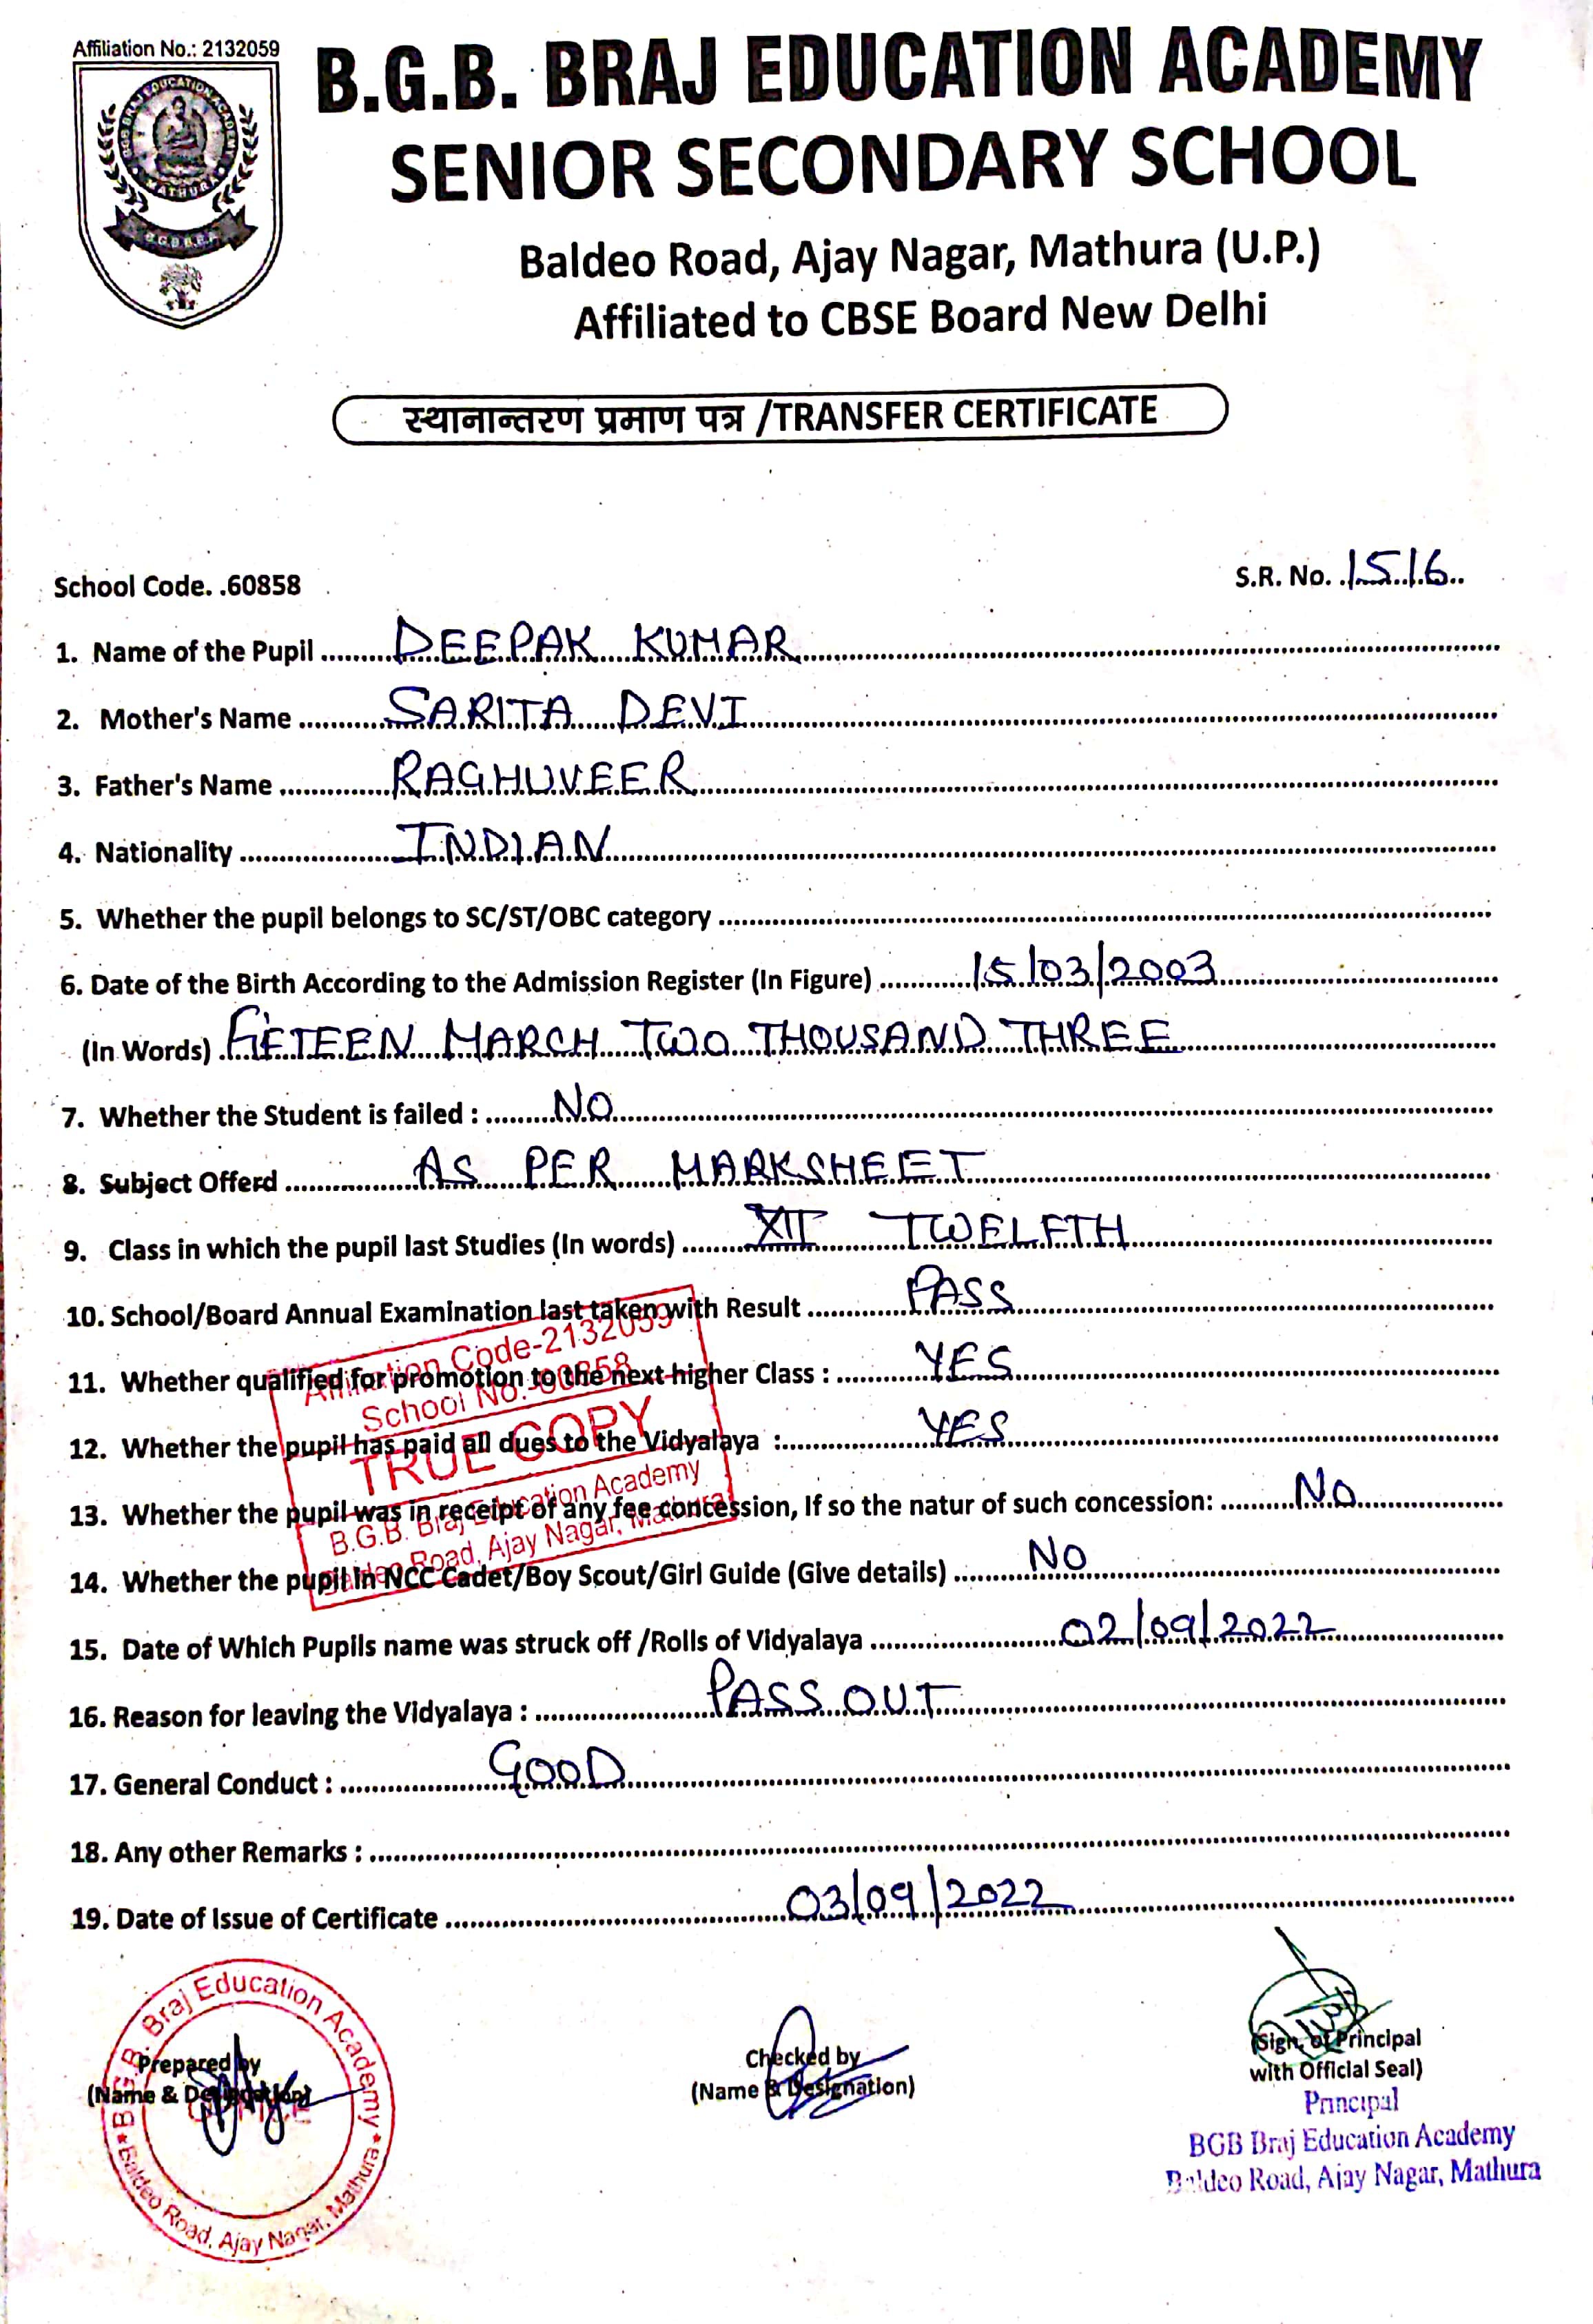 Affiliation No.: 2132059
BGB BRAJ EDUCATION ACADEMY
MATHURA
B.G.B. BRAJ EDUCATION ACADEMY
SENIOR SECONDARY SCHOOL
Baldeo Road, Ajay Nagar, Mathura (U.P.)
Affiliated to CBSE Board New Delhi
स्थानान्तरण प्रमाण पत्र /TRANSFER CERTIFICATE
School Code. .60858
S.R. No. 1516
1. Name of the Pupil DEEPAK KUMAR
2. Mother's Name SARITA DEVI
3. Father's Name RAGHUVEER
4. Nationality INDIAN
5. Whether the pupil belongs to SC/ST/OBC category
6. Date of the Birth According to the Admission Register (In Figure) 15/03/2003
(In Words) FIFTEEN MARCH TWO THOUSAND THREE
7. Whether the Student is failed : NO
8. Subject Offerd AS PER MARKSHEET
9. Class in which the pupil last Studies (In words) XII TWELFTH
10. School/Board Annual Examination last taken with Result PASS
11. Whether qualified for promotion to the next higher Class : YES
12. Whether the pupil has paid all dues to the Vidyalaya : YES
13. Whether the pupil was in receipt of any fee concession, If so the natur of such concession: NO
14. Whether the pupil in NCC Cadet/Boy Scout/Girl Guide (Give details) NO
15. Date of Which Pupils name was struck off /Rolls of Vidyalaya 02/09/2022
16. Reason for leaving the Vidyalaya : PASS OUT
17. General Conduct : GOOD
18. Any other Remarks :
19. Date of Issue of Certificate 03/09/2022
Affiliation Code-2132059
School No.-60858
TRUE COPY
B.G.B. Braj Education Academy
Baldeo Road, Ajay Nagar, Mathura
B.G.B. Braj Education Academy
Baldeo Road, Ajay Nagar, Mathura
Prepared by
(Name & Designation)
Checked by
(Name & Designation)
(Sign. of Principal
with Official Seal)
Principal
BGB Braj Education Academy
Baldeo Road, Ajay Nagar, Mathura